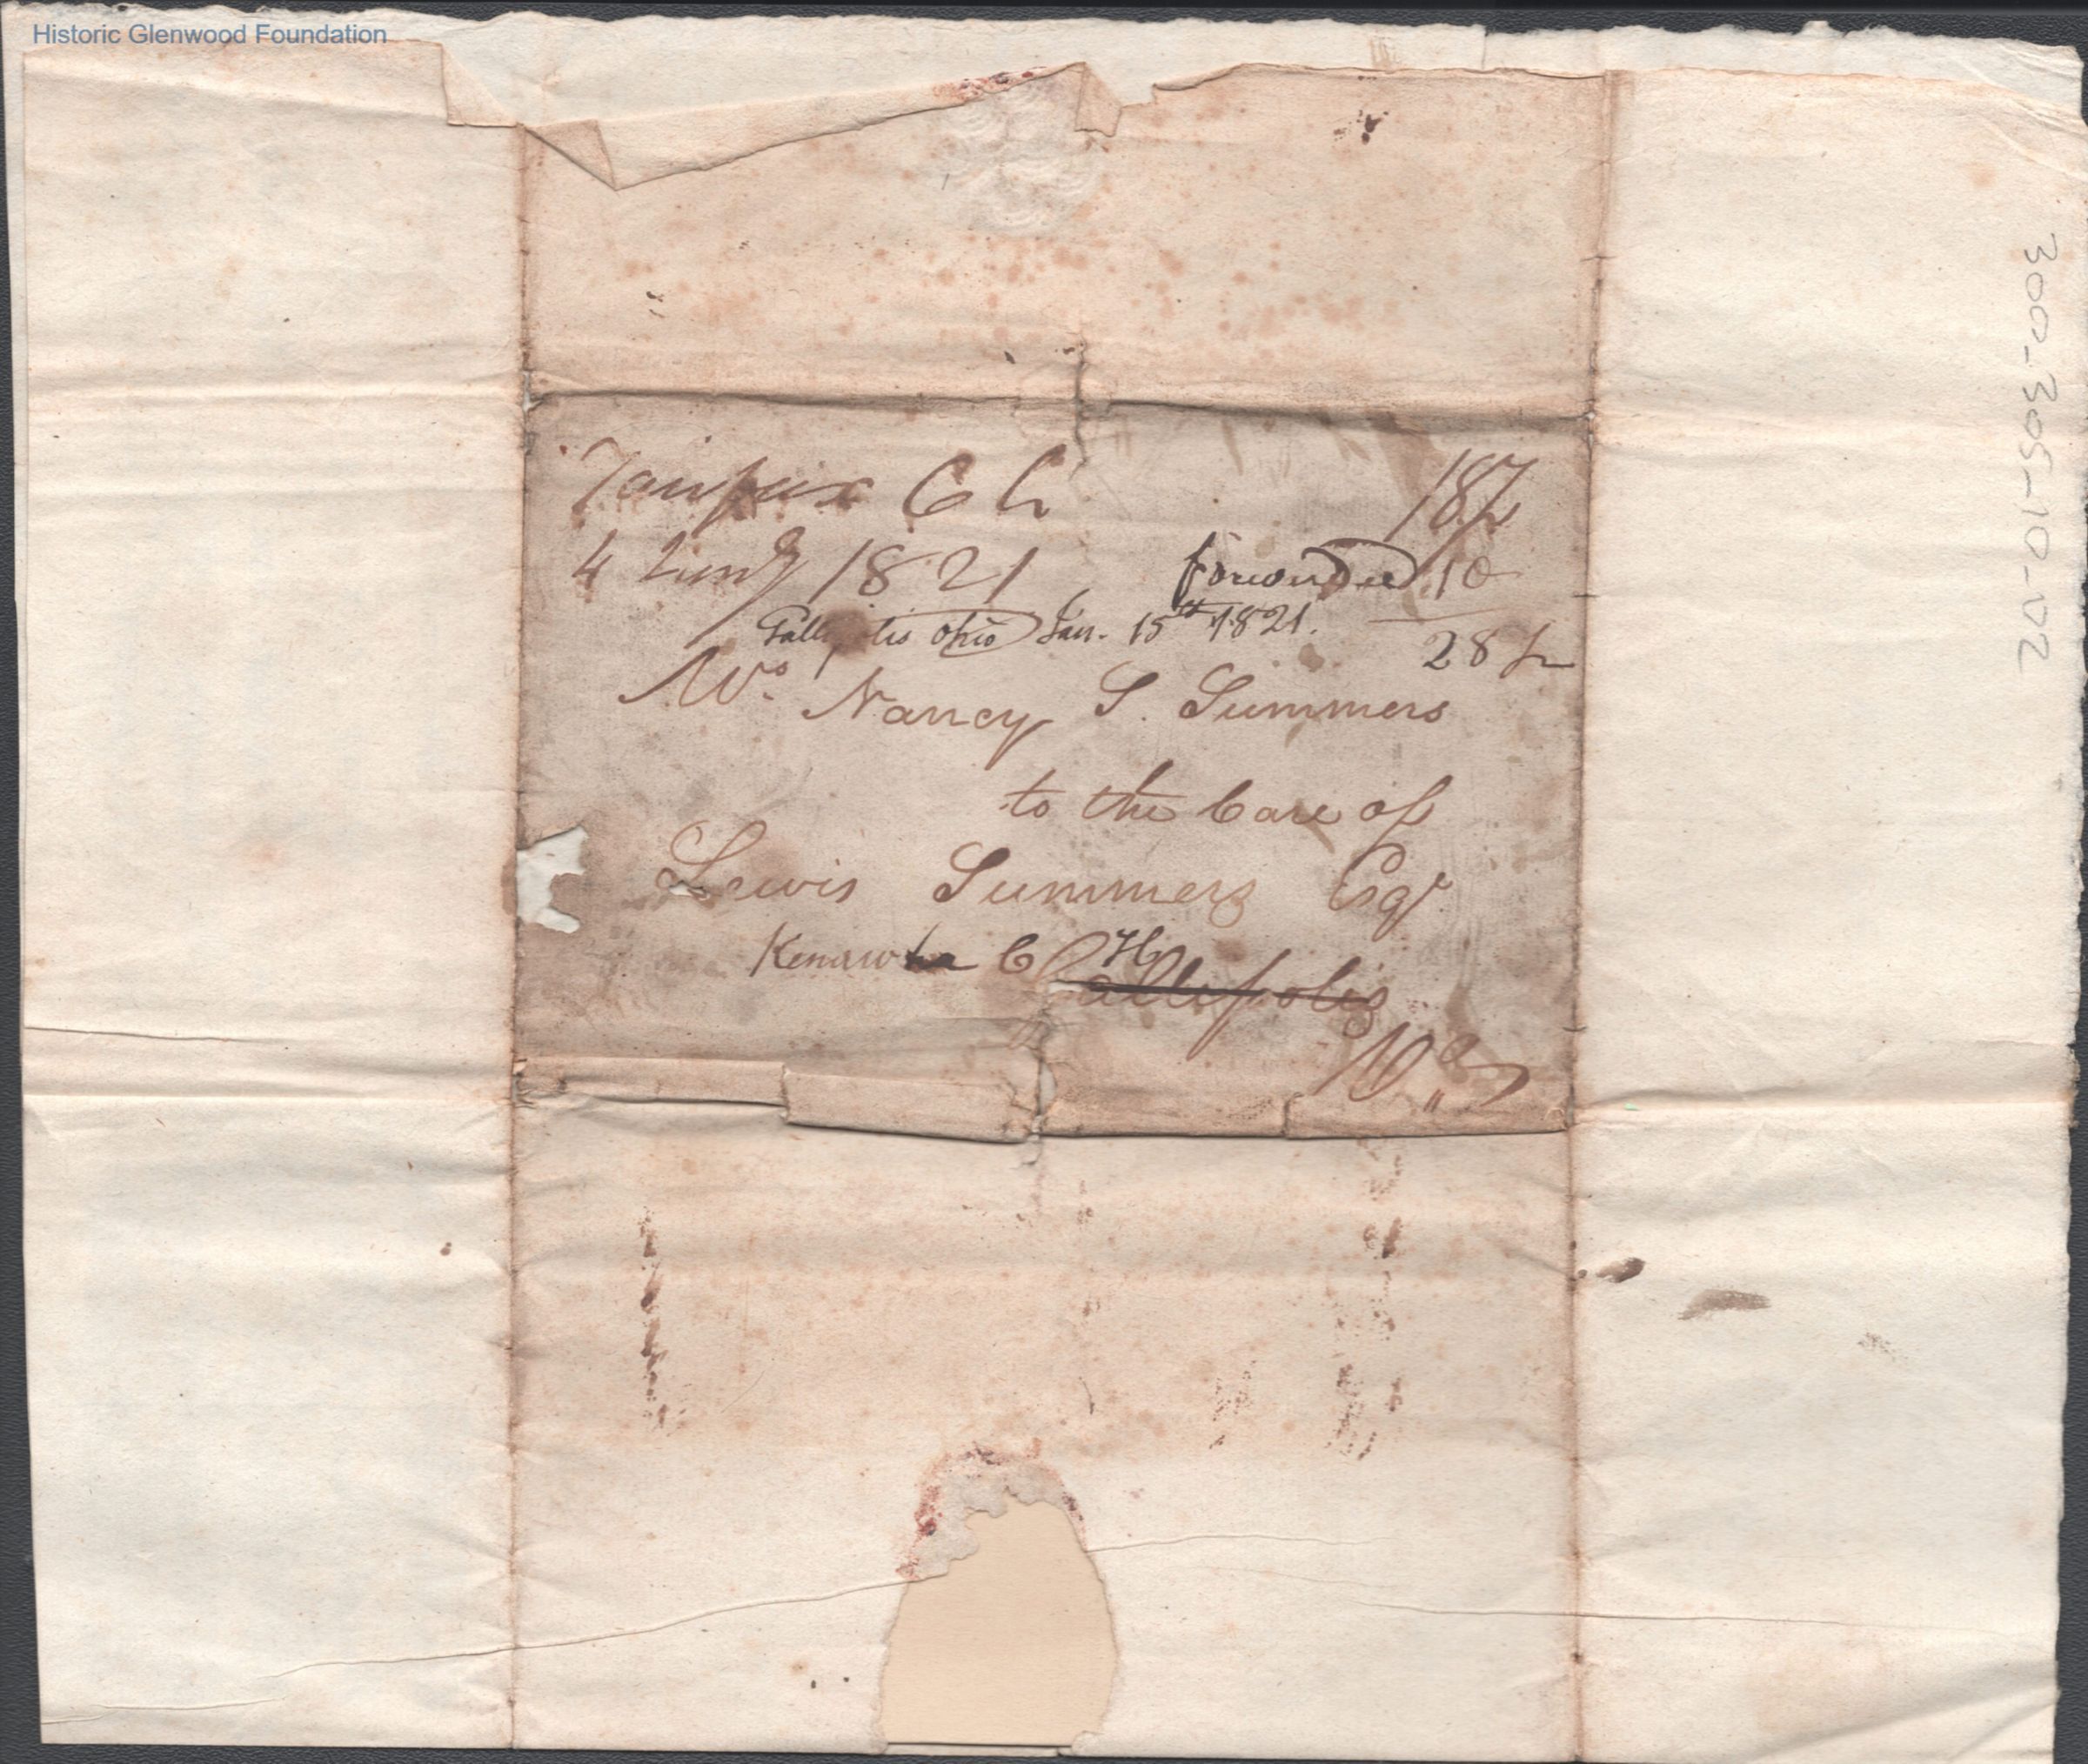 Historic Glenwood Foundation
Fairfax C h
18½
4 Jany 1821
forwarded 10
Gallipolis Ohio Jan. 15th 1821.
28½
Mrs. Nancy S. Summers
to the Care of
Lewis Summers Esqr
Kenawha C H
Gallepolis
300-305-10-02